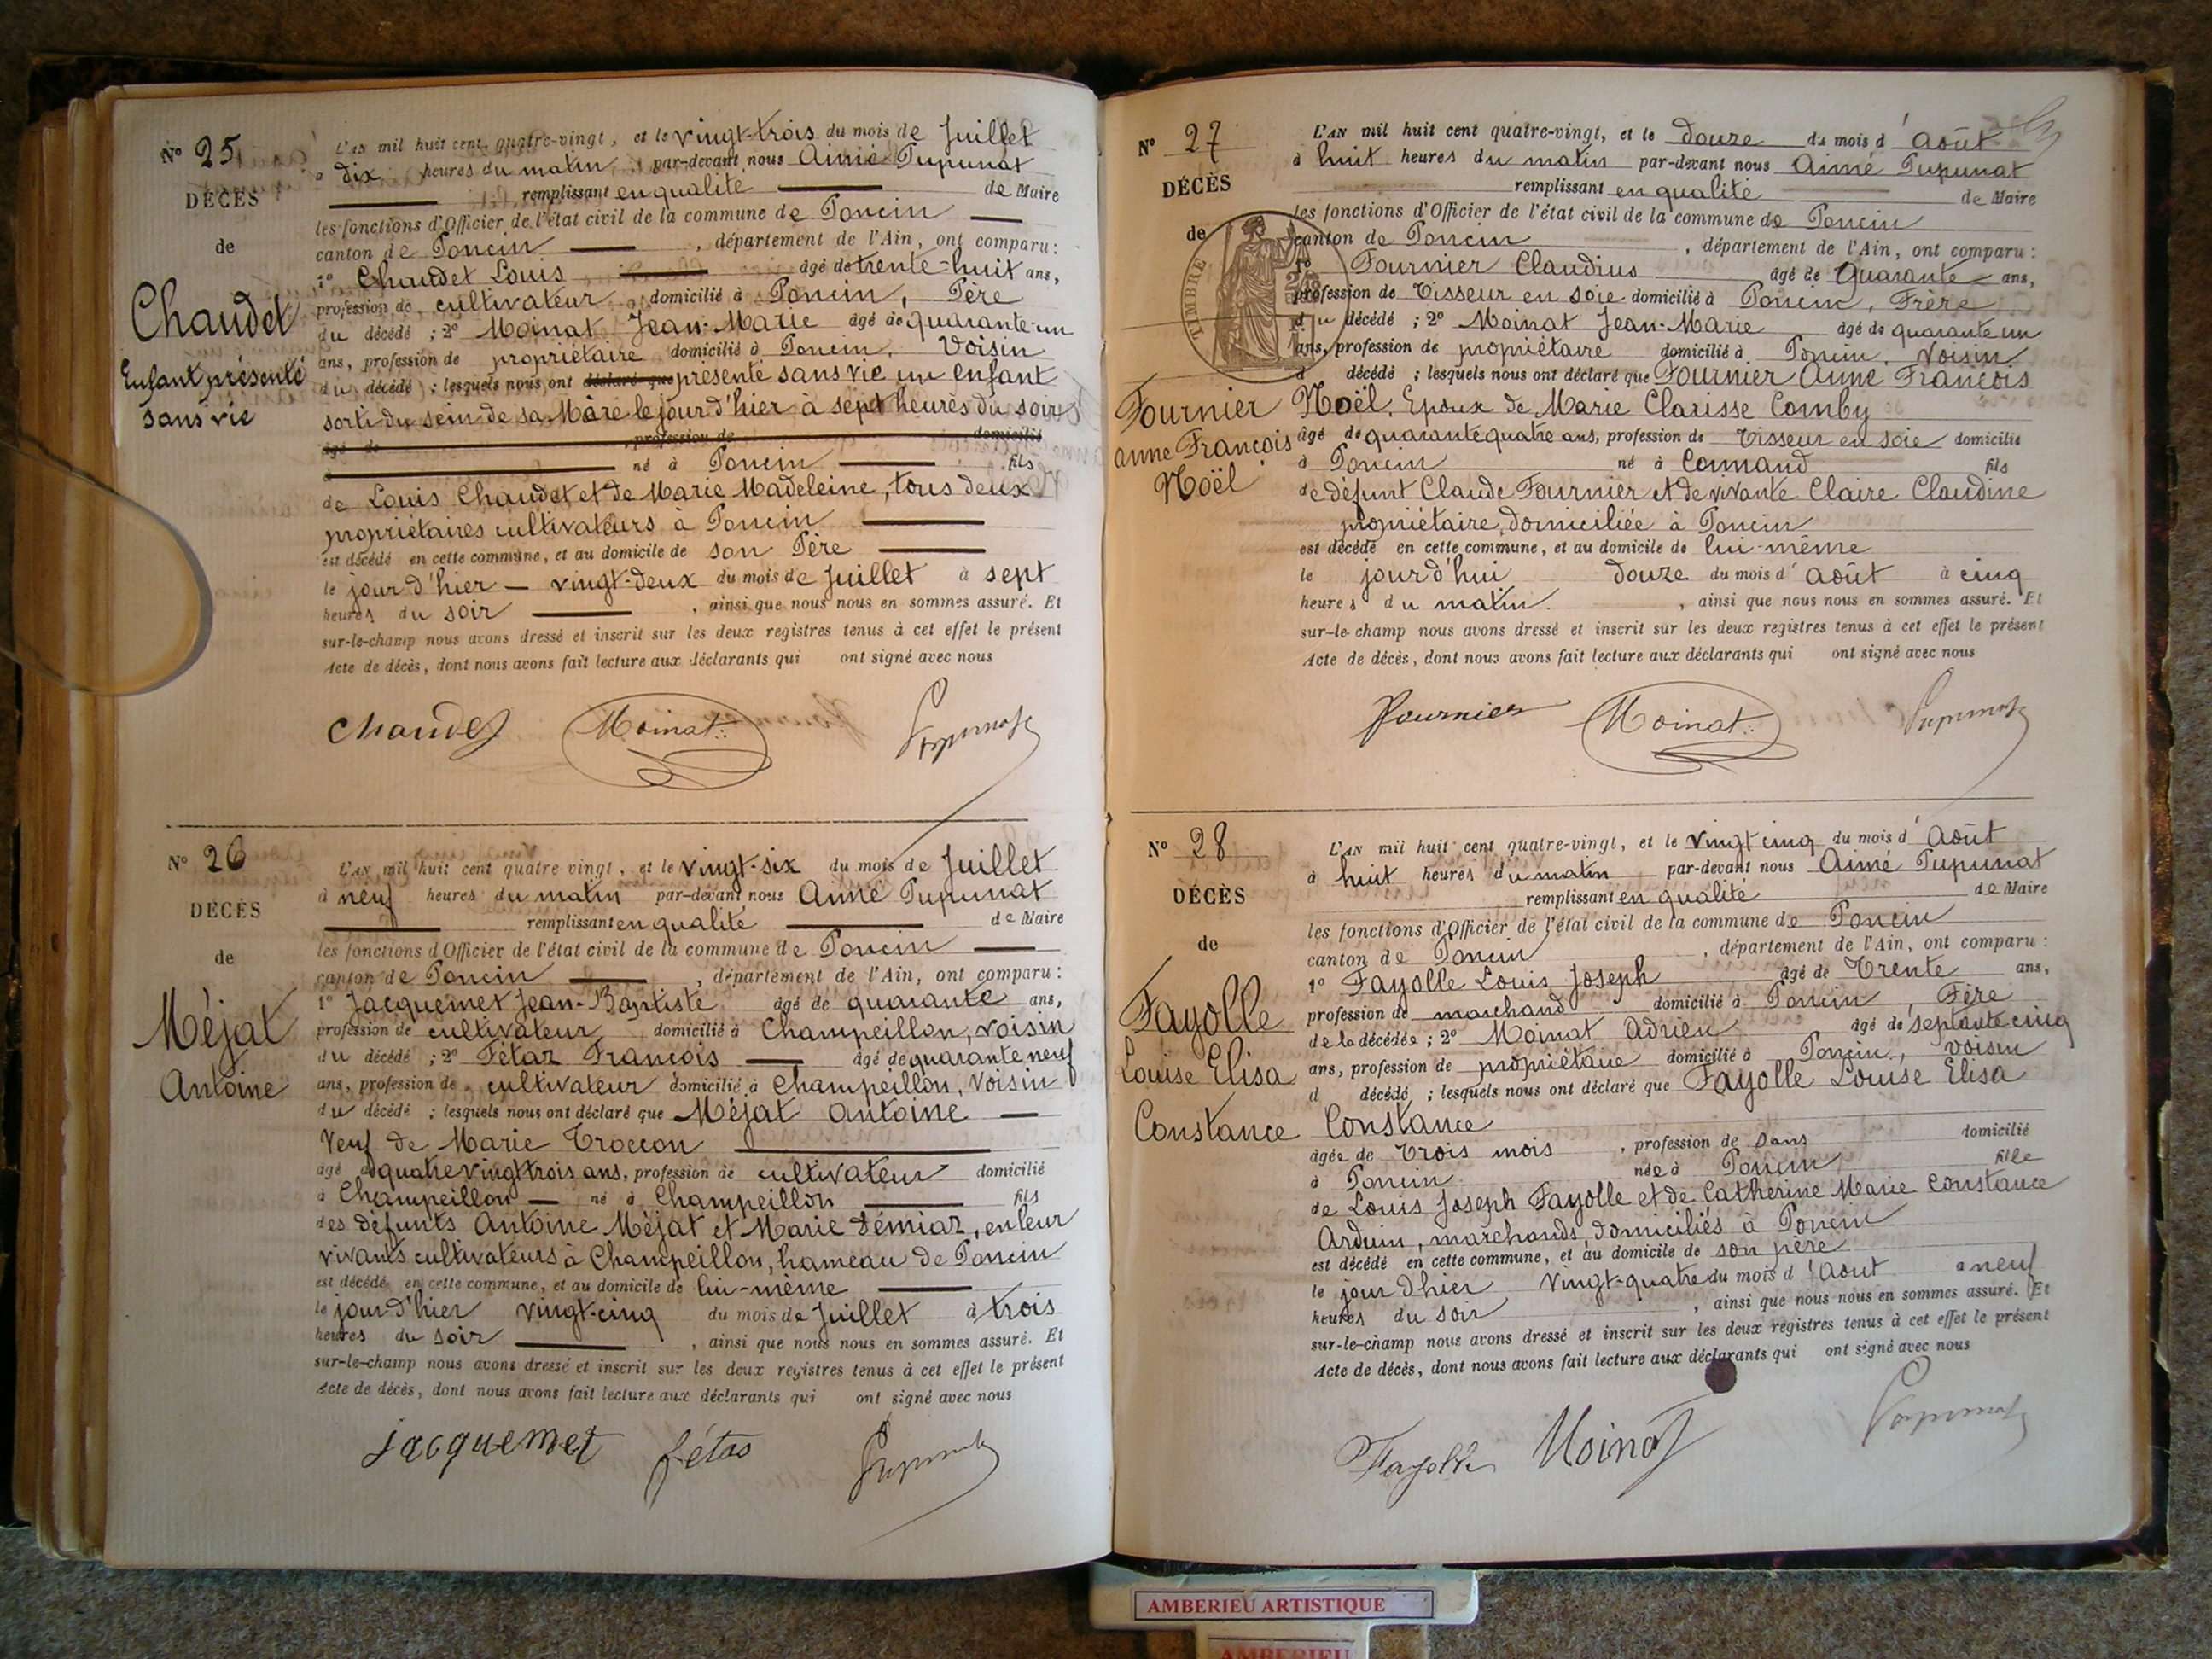 N° 25
DÉCÈS
de
Chaudet
Enfant présenté
sans vie
L'AN mil huit cent quatre-vingt, et le vingt-trois du mois de Juillet
à dix heures du matin par-devant nous Aimé Pupunat
remplissant en qualité de Maire
les fonctions d'Officier de l'état civil de la commune de Poncin
canton de Poncin, département de l'Ain, ont comparu :
1° Chaudet Louis âgé de trente-huit ans,
profession de cultivateur domicilié à Poncin, Père
du décédé ; 2° Moinat Jean-Marie âgé de quarante-un
ans, profession de propriétaire domicilié à Poncin, Voisin
du décédé ; lesquels nous ont déclaré que présenté sans vie un enfant
sorti du sein de sa Mère le jour d'hier à sept heures du soir
âgé de , profession de domicilié
à né à Poncin fils
de Louis Chaudet et de Marie Madeleine, tous deux
propriétaires cultivateurs à Poncin
est décédé en cette commune, et au domicile de son Père
le jour d'hier — vingt-deux du mois de Juillet à sept
heures du soir , ainsi que nous nous en sommes assuré. Et
sur-le-champ nous avons dressé et inscrit sur les deux registres tenus à cet effet le présent
Acte de décès, dont nous avons fait lecture aux déclarants qui ont signé avec nous
Chaudet Moinat Pupunat
N° 26
DÉCÈS
de
Méjat
Antoine
L'AN mil huit cent quatre vingt, et le vingt-six du mois de Juillet
à neuf heures du matin par-devant nous Aimé Pupunat
remplissant en qualité de Maire
les fonctions d'Officier de l'état civil de la commune de Poncin
canton de Poncin, département de l'Ain, ont comparu :
1° Jacquemet Jean-Baptiste âgé de quarante ans,
profession de cultivateur domicilié à Champeillon, voisin
du décédé ; 2° Fétaz François âgé de quarante neuf
ans, profession de cultivateur domicilié à Champeillon, Voisin
du décédé ; lesquels nous ont déclaré que Méjat Antoine
Veuf de Marie Troccon
âgé de quatre vingt trois ans, profession de cultivateur domicilié
à Champeillon — né à Champeillon fils
des défunts Antoine Méjat et Marie Démiaz, en leur
vivants cultivateurs à Champeillon, hameau de Poncin
est décédé en cette commune, et au domicile de lui-même
le jour d'hier vingt-cinq du mois de Juillet à trois
heures du soir , ainsi que nous nous en sommes assuré. Et
sur-le-champ nous avons dressé et inscrit sur les deux registres tenus à cet effet le présent
Acte de décès, dont nous avons fait lecture aux déclarants qui ont signé avec nous
jacquemet fétas Pupunat
N° 27
DÉCÈS
de
TIMBRE
Fournier
Anne François
Noël
L'AN mil huit cent quatre-vingt, et le douze du mois d'Août
à huit heures du matin par-devant nous Aimé Pupunat
remplissant en qualité de Maire
les fonctions d'Officier de l'état civil de la commune de Poncin
canton de Poncin , département de l'Ain, ont comparu :
1° Fournier Claudius âgé de Quarante ans,
profession de Tisseur en soie domicilié à Poncin, Frère
du décédé ; 2° Moinat Jean-Marie âgé de quarante un
ans, profession de propriétaire domicilié à Poncin, Voisin
d décédé ; lesquels nous ont déclaré que Fournier Anne François
Noël, Epoux de Marie Clarisse Comby
âgé de quarante quatre ans, profession de Tisseur en soie domicilié
à Poncin né à Conand fils
de défunt Claude Fournier et de vivante Claire Claudine
propriétaire, domiciliée à Poncin
est décédé en cette commune, et au domicile de lui-même
le jourd'hui douze du mois d'août à cinq
heures du matin , ainsi que nous nous en sommes assuré. Et
sur-le-champ nous avons dressé et inscrit sur les deux registres tenus à cet effet le présent
Acte de décès, dont nous avons fait lecture aux déclarants qui ont signé avec nous
Fournier Moinat Pupunat
N° 28
DÉCÈS
de
Fayolle
Louise Elisa
Constance
L'AN mil huit cent quatre-vingt, et le vingt cinq du mois d'Août
à huit heures du matin par-devant nous Aimé Pupunat
remplissant en qualité de Maire
les fonctions d'Officier de l'état civil de la commune de Poncin
canton de Poncin , département de l'Ain, ont comparu :
1° Fayolle Louis Joseph âgé de Trente ans,
profession de marchand domicilié à Poncin, Père
de la décédée ; 2° Moinat Adrien âgé de septante cinq
ans, profession de propriétaire domicilié à Poncin, voisin
d décédé ; lesquels nous ont déclaré que Fayolle Louise Elisa
Constance
âgée de Trois mois , profession de sans domicilié
à Poncin née à Poncin fille
de Louis Joseph Fayolle et de Catherine Marie Constance
Arduin, marchands domiciliés à Poncin
est décédé en cette commune, et au domicile de son père
le jour d'hier vingt-quatre du mois d'Août à neuf
heures du soir , ainsi que nous nous en sommes assuré. Et
sur-le-champ nous avons dressé et inscrit sur les deux registres tenus à cet effet le présent
Acte de décès, dont nous avons fait lecture aux déclarants qui ont signé avec nous
Fayolle Moinat Pupunat
AMBERIEU ARTISTIQUE
AMBERIEU